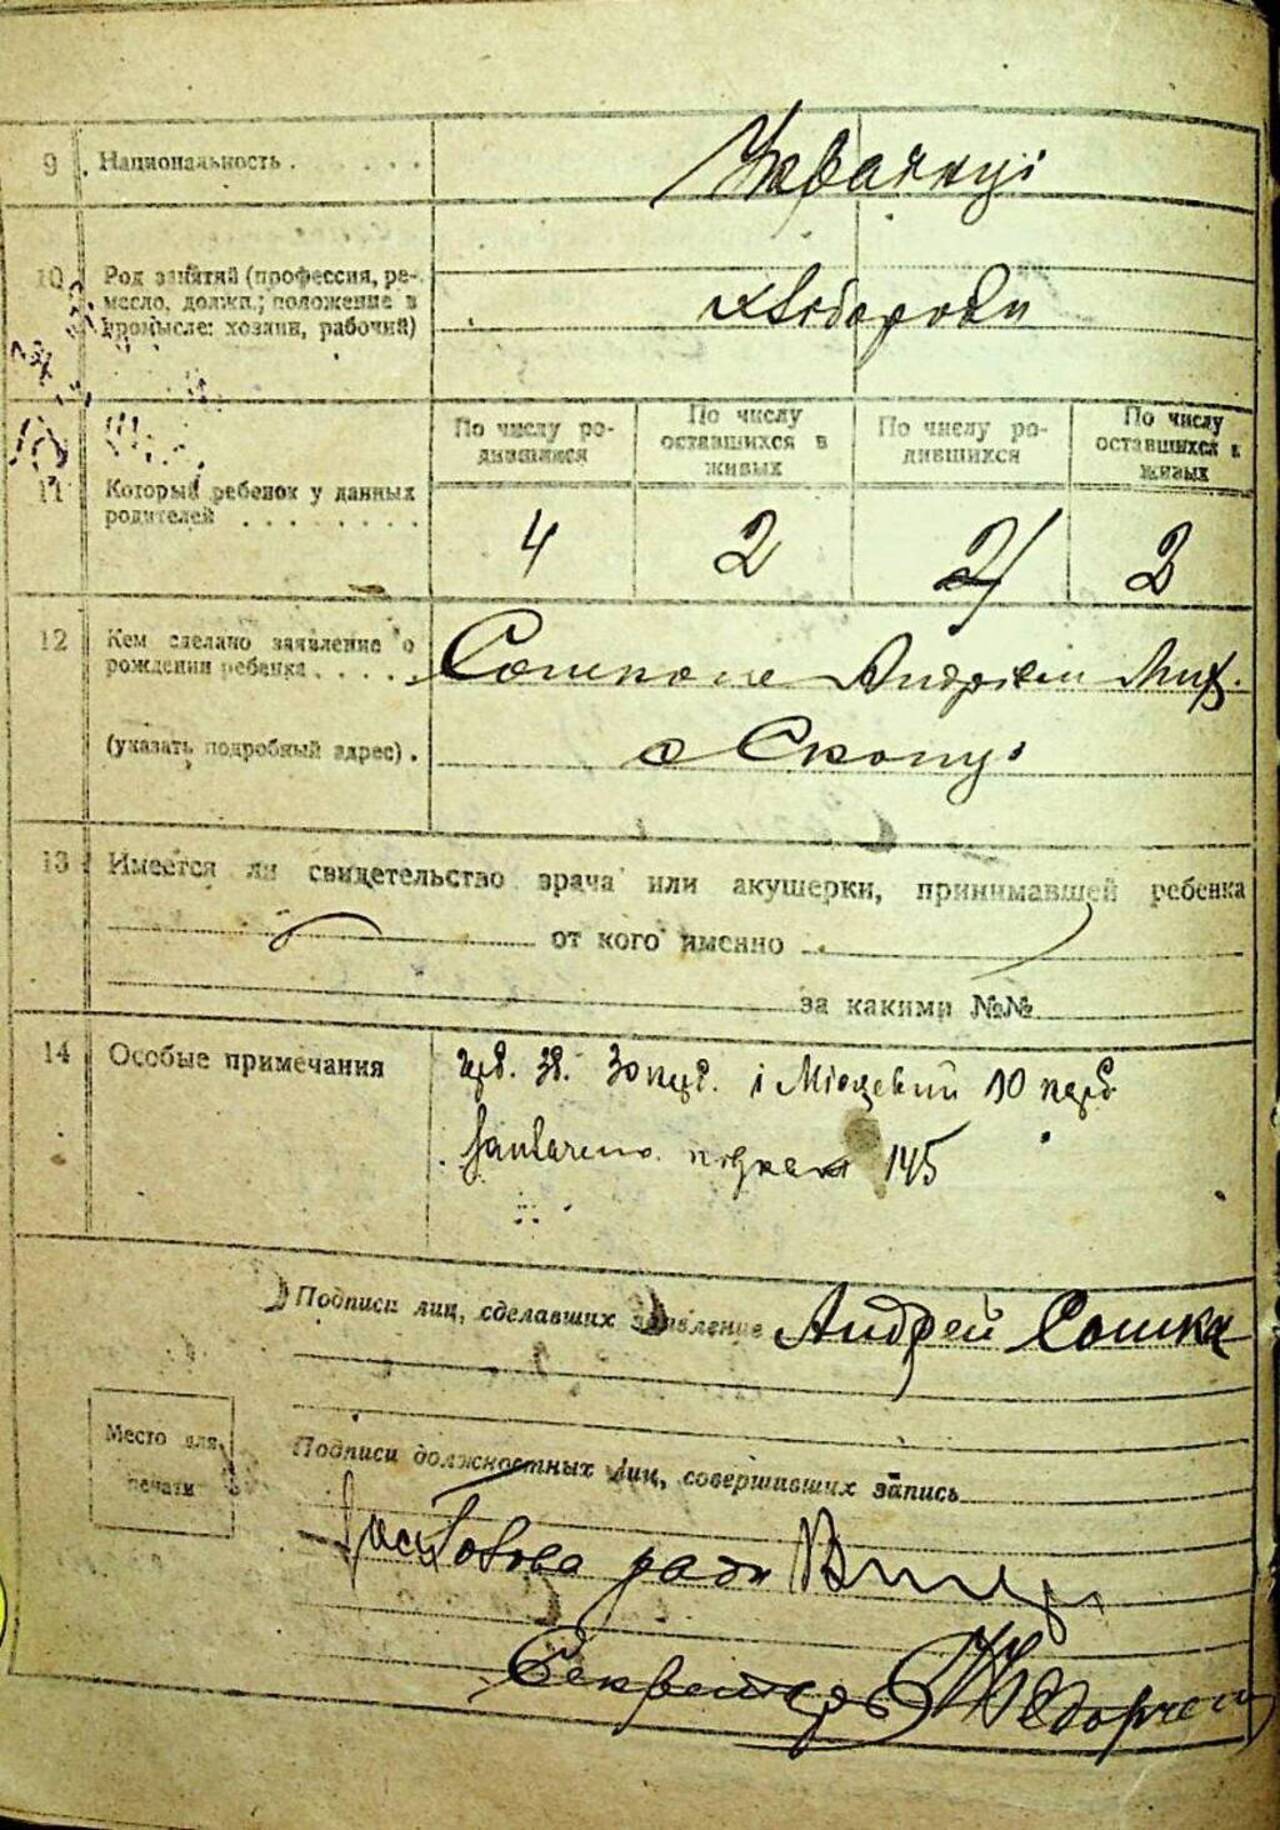 9 Национальность . . . . . Українці
10 Род занятий (профессия, ре-
месло, должн.; положение в
промысле: хозяин, рабочий)
хлібороби
По числу ро-
дившихся
По числу
оставшихся в
живых
По числу ро-
дившихся
По числу
оставшихся в
живых
11 Который ребенок у данных
родителей . . . . . . . .
4 2 2 2
12 Кем сделано заявление о
рождении ребенка . . . .
Андрієм Мих.
(указать подробный адрес) .
с Скопці
13 Имеется ли свидетельство врача или акушерки, принимавшей ребенка
от кого именно
за какими №№
14 Особые примечания
і Місцевий 10 карб
145
Подписи лиц, сделавших заявление Андрей Сошка
Место для
печати
Подписи должностных лиц, совершивших запись
Голова ради
Секретарь